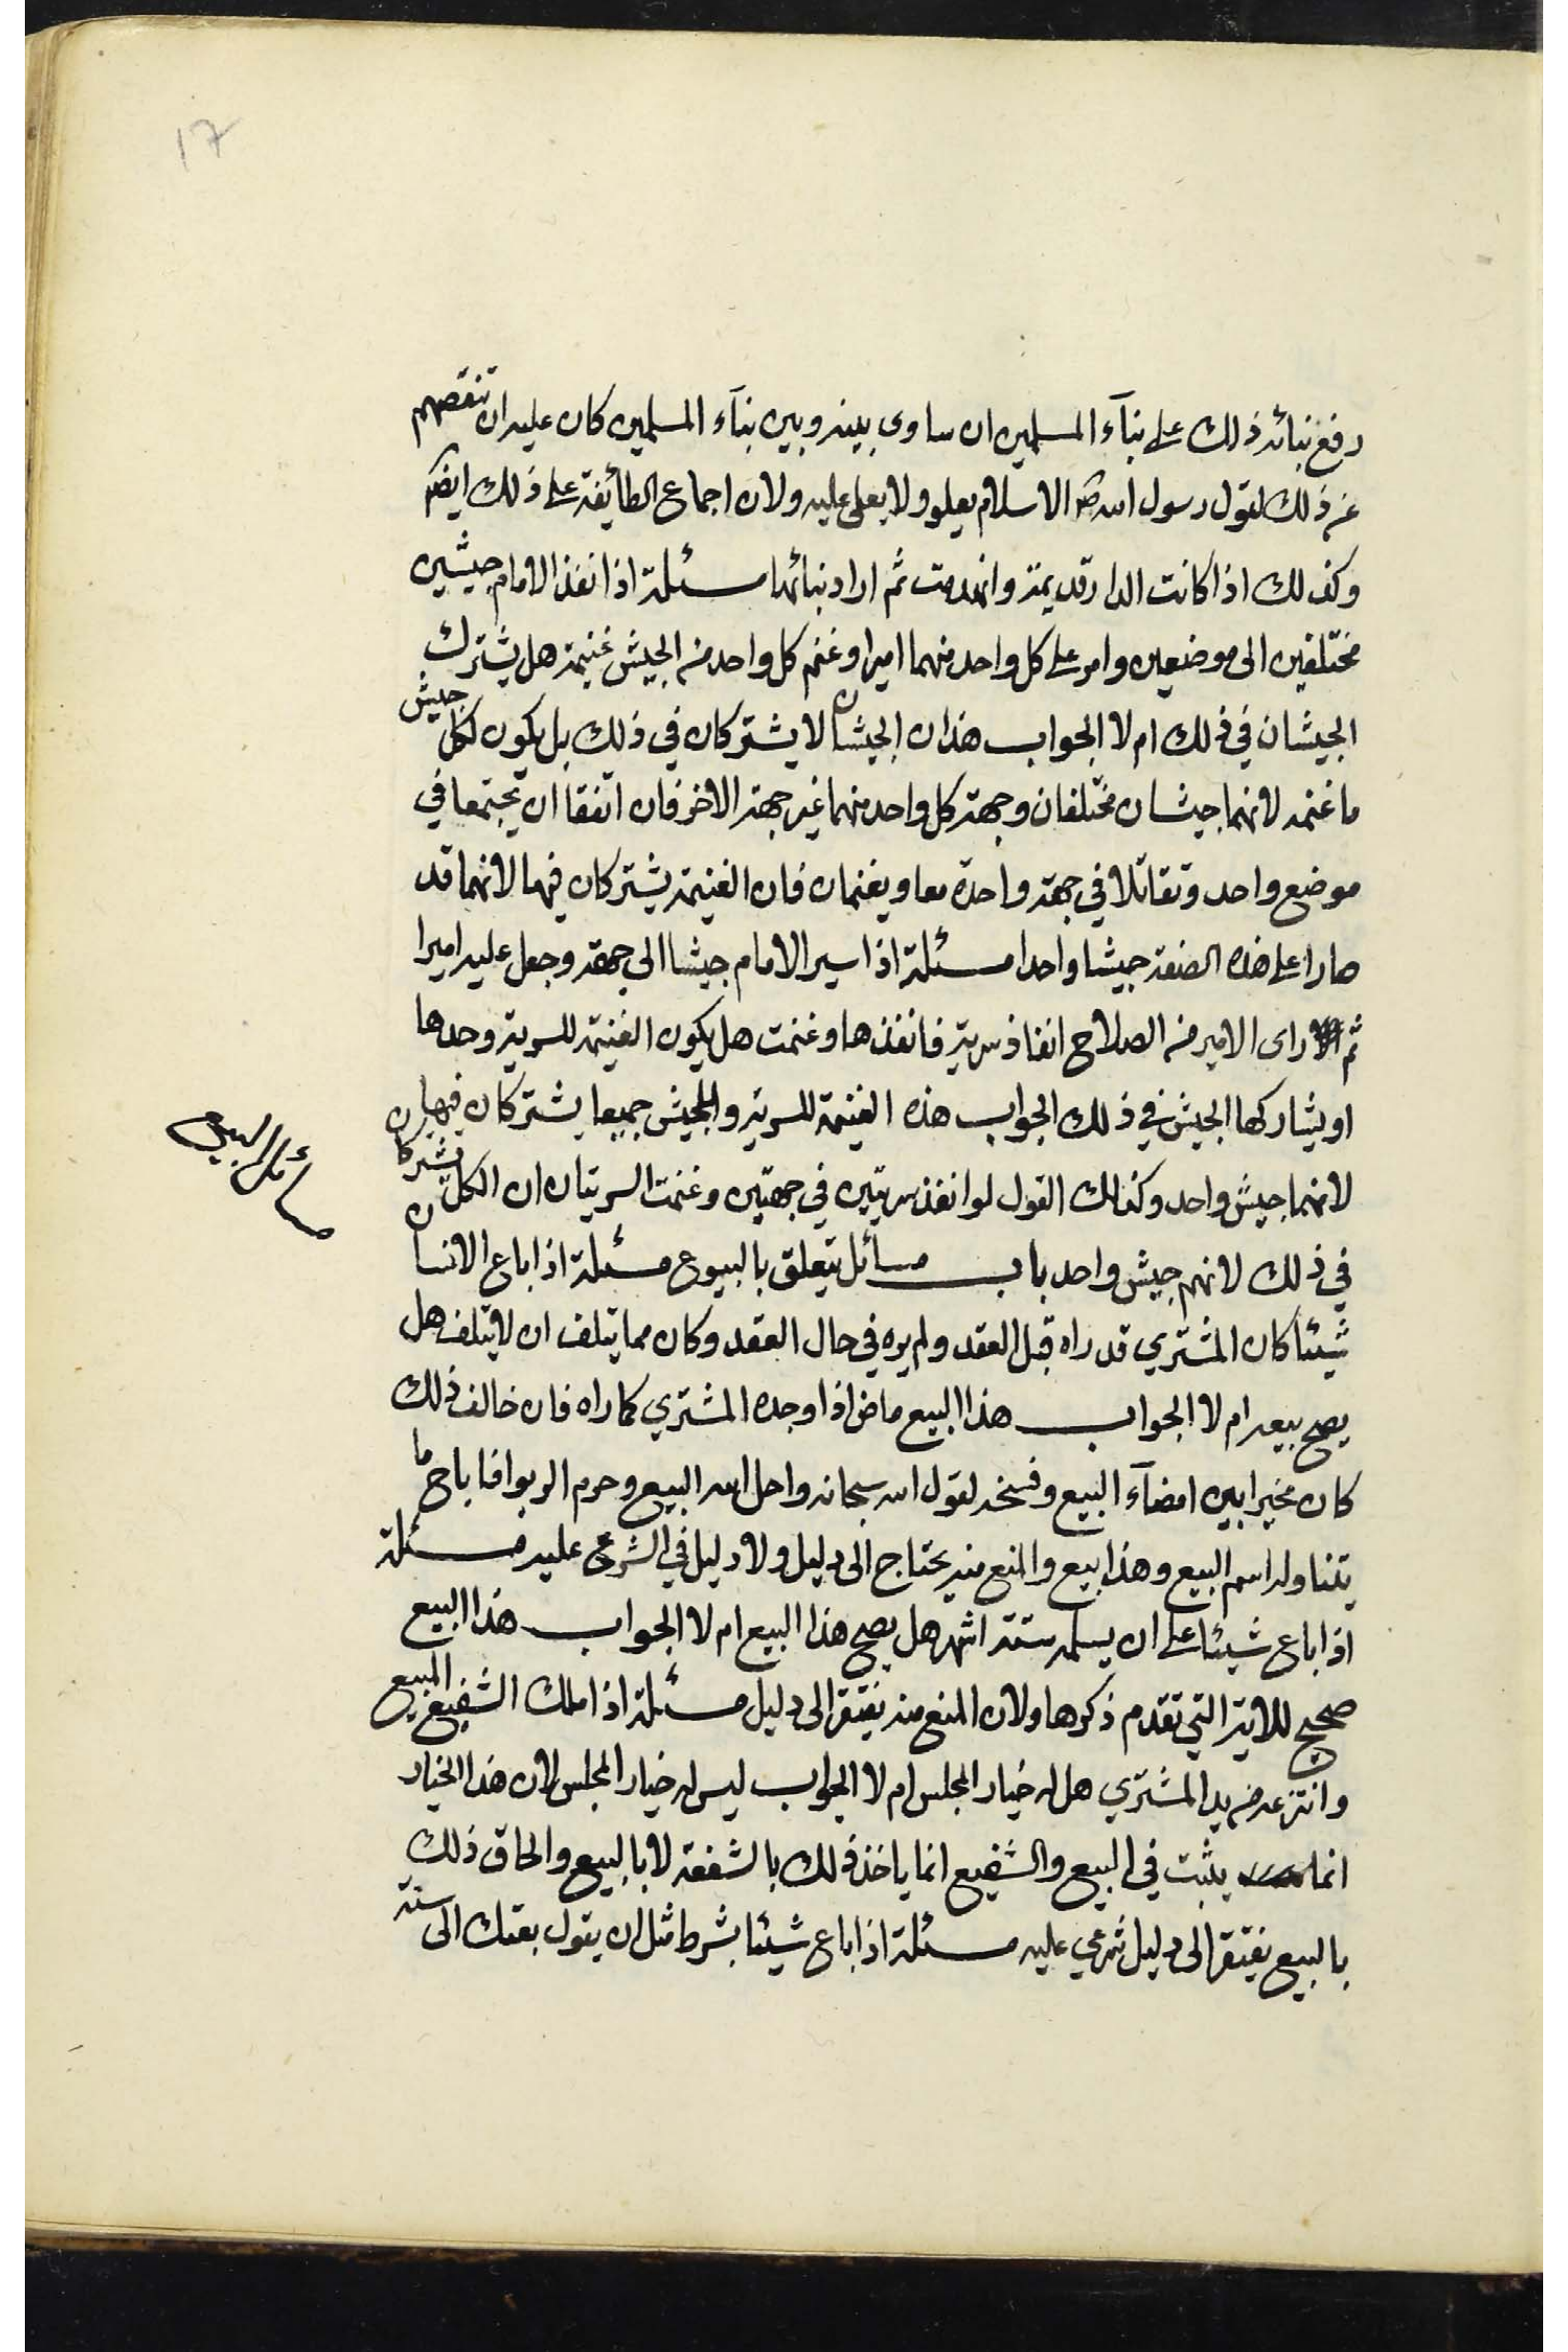 17
رفع بنائه ذلك على بنآء المسلمين ان ساوى بينه وبين بنآء المسلمين كان عليه ان تنقصهم
عن ذلك لقول رسول الله ص الاسلام يعلو ولا يعلى عليه ولان اجماع الطائفة على ذلك ايضا
وكذلك اذا كانت الدار قديمة وانهدمت ثم اراد بنائها مسئلة اذا انفذ الامام جيشين
مختلفين الى موضعين وامر على كل واحد منهما اميرا وغنم كل واحد من الجيش غنيمة هل يشترك
الجيشان في ذلك ام لا الجواب هذان الجيشان لا يشتركان في ذلك بل يكون لكل جيش
ما غنمه لانهما جيشان مختلفان وجهة كل واحد منهما غير جهة الاخر فان اتفقا ان يجتمعا في
موضع واحد وتقاتلا في جهة واحدة معا ويغنمان فان الغنيمة يشتركان فيها لانهما قد
صارا على هذه الصفة جيشا واحدا مسئلة اذا سير الامام جيشا الى جهة وجعل عليه اميرا
ثم راى الامير من الصلاح انفاذ سرية فانفذها وغنمت هل يكون الغنيمة للسرية وحدها
او يشاركها الجيش في ذلك الجواب هذه الغنيمة للسرية وللجيش جميعا يشتركان فيها
لانهما جيش واحد وكذلك القول لو انفذ سريتين في جهتين وغنمت السريتان ان الكل يشتركان
في ذلك لانهم جيش واحد باب مسائل يتعلق بالبيوع مسئلة اذا باع الانسان
مسائل البيع
شيئا كان المشتري قد راه قبل العقد ولم يره في حال العقد وكان مما يتلف ان لا يتلف هل
يصح بيعه ام لا الجواب هذا البيع ماض اذا وجده المشتري كما راه فان خالف ذلك
كان مخيرا بين امضآء البيع وفسخه لقول الله سبحانه واحل الله البيع وحرم الربوا فاباح ما
يتناوله اسم البيع وهذا بيع والمنع منه يحتاج الى دليل ولا دليل في الشرع عليه مسئلة
اذا باع شيئا على ان يسلمه ستة اشهر هل يصح هذا البيع ام لا الجواب هذا البيع
صحيح للاية التي تقدم ذكرها ولان المنع منه يفتقر الى دليل مسئلة اذا ملك الشفيع المبيع
وانتزعه من يد المشتري هل له خيار المجلس ام لا الجواب ليس له خيار المجلس لان هذا الخيار
انما يثبت في البيع والشفيع انما ياخذ ذلك بالشفعة لا بالبيع والحاق ذلك
بالبيع يفتقر الى دليل شرعي عليه مسئلة اذا باع شيئا بشرط مثل ان يقول بعتك الى سنة